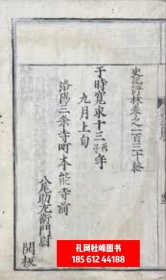 史記評林卷之一百三十終
于時寬永十三丙子年
九月上旬
洛陽三条寺町本能寺前
八尾助左衞門尉
開板
孔网杜峰图书
185 612 44188